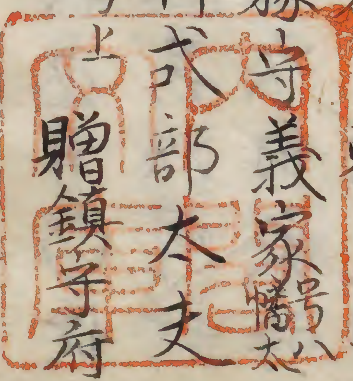 守義家号八幡太
式部太夫
上 贈鎮守府